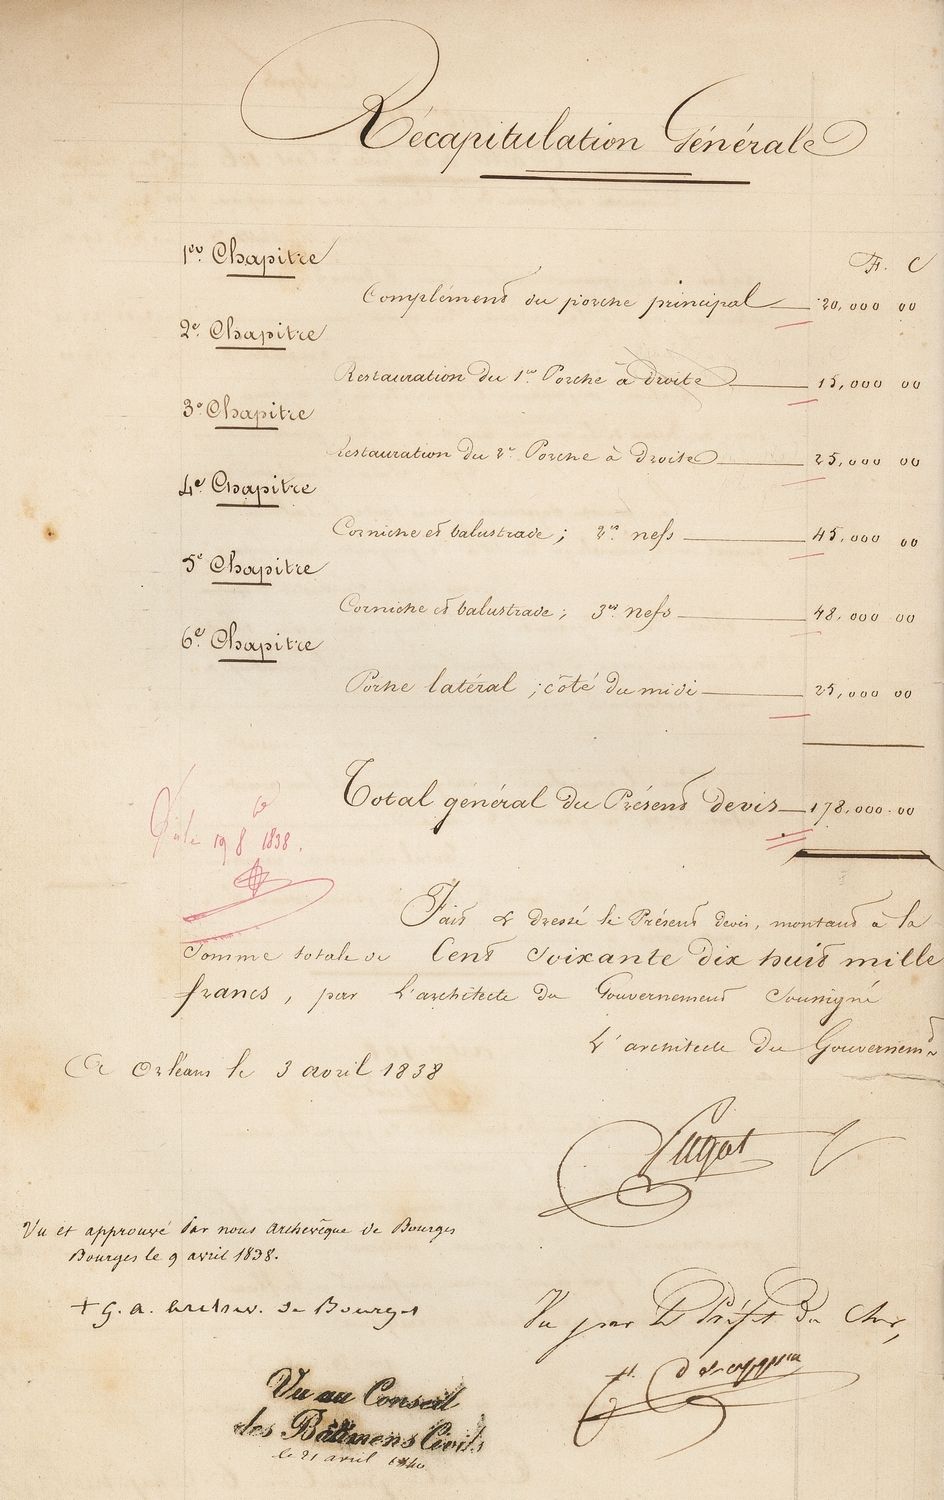 Récapitulation Générale
1er Chapitre
F. C
Complément du porche principal 20,000 00
2e Chapitre
Restauration du 1er Porche à droite 15,000 00
3e Chapitre
Restauration du 2e Porche à droite 25,000 00
4e Chapitre
Corniche et balustrade; 2es nefs 45,000 00
5e Chapitre
Corniche et balustrade; 3es nefs 48,000 00
6e Chapitre
Porche latéral; côté du midi 25,000 00
Total général du Présent devis 178,000.00
19 8 1838.
Fait & dressé le Présent devis, montant à la
Somme totale de Cent soixante dix huit mille
francs, par l'architecte du Gouvernement soussigné
L'architecte du Gouvernemt
A Orléans le 3 avril 1838
Pagot
Vu et approuvé par nous archevêque de Bourges
Bourges le 9 avril 1838.
+ g. a. archev. de Bourges
Vu par Le Préfet du Cher,
Vu au Conseil
des Bâtimens Civils
le 21 avril 1840